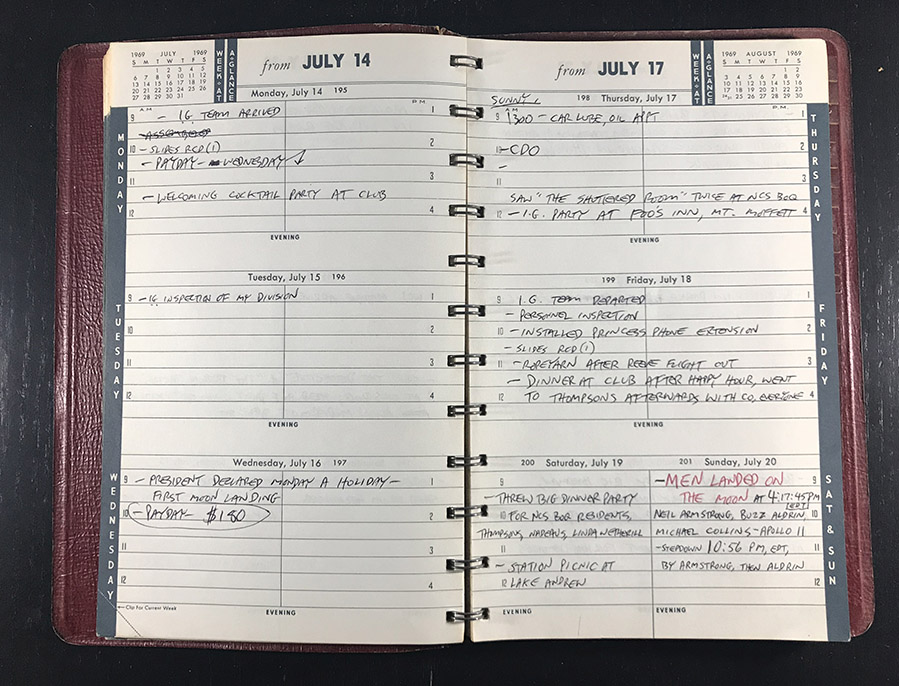 1969 JULY 1969
S M T W T F S
1 2 3 4 5
6 7 8 9 10 11 12
13 14 15 16 17 18 19
20 21 22 23 24 25 26
27 28 29 30 31
WEEK • AT
A • GLANCE
from JULY 14
Monday, July 14 195
A M
P M
9 – I.G. TEAM ARRIVED 1
10 – SLIDES RCD (1) 2
– PAYDAY – WEDNESDAY
11 3
– WELCOMING COCKTAIL PARTY AT CLUB
12 4
EVENING
MONDAY
Tuesday, July 15 196
9 – IG INSPECTION OF MY DIVISION 1
10 2
11 3
12 4
EVENING
TUESDAY
Wednesday, July 16 197
9 – PRESIDENT DECLARED MONDAY A HOLIDAY – 1
FIRST MOON LANDING
10 – PAYDAY – $180 2
11 3
12 4
EVENING
WEDNESDAY
←Clip For Current Week
from JULY 17
WEEK • AT
A • GLANCE
1969 AUGUST 1969
S M T W T F S
1 2
3 4 5 6 7 8 9
10 11 12 13 14 15 16
17 18 19 20 21 22 23
24/31 25 26 27 28 29 30
SUNNY, 198 Thursday, July 17
A M
P.M.
9 1300 – CAR LUBE, OIL APPT 1
10 – CDO 2
–
11 3
SAW "THE SHUTTERED ROOM" TWICE AT NCS BOQ
12 – I.G. PARTY AT FOO'S INN, MT. MOFFETT 4
EVENING
THURSDAY
199 Friday, July 18
9 I.G. TEAM DEPARTED 1
– PERSONNEL INSPECTION
10 – INSTALLED PRINCESS PHONE EXTENSION 2
– SLIDES RCD (1)
11 – ROPEYARN AFTER REEVE FLIGHT OUT 3
– DINNER AT CLUB AFTER HAPPY HOUR, WENT
12 TO THOMPSONS AFTERWARDS WITH CO, EVERYONE 4
EVENING
FRIDAY
200 Saturday, July 19
9
– THREW BIG DINNER PARTY
10 FOR NCS BOQ RESIDENTS,
THOMPSONS, NADEAUS, LINDA NETHERILL
11
– STATION PICNIC AT
12 LAKE ANDREW
EVENING
201 Sunday, July 20
– MEN LANDED ON 9
THE MOON AT 4:17:45 PM
(EDT)
NEIL ARMSTRONG, BUZZ ALDRIN, 10
MICHAEL COLLINS – APOLLO 11
– STEPDOWN 10:56 PM, EDT, 11
BY ARMSTRONG, THEN ALDRIN
12
EVENING
SAT & SUN